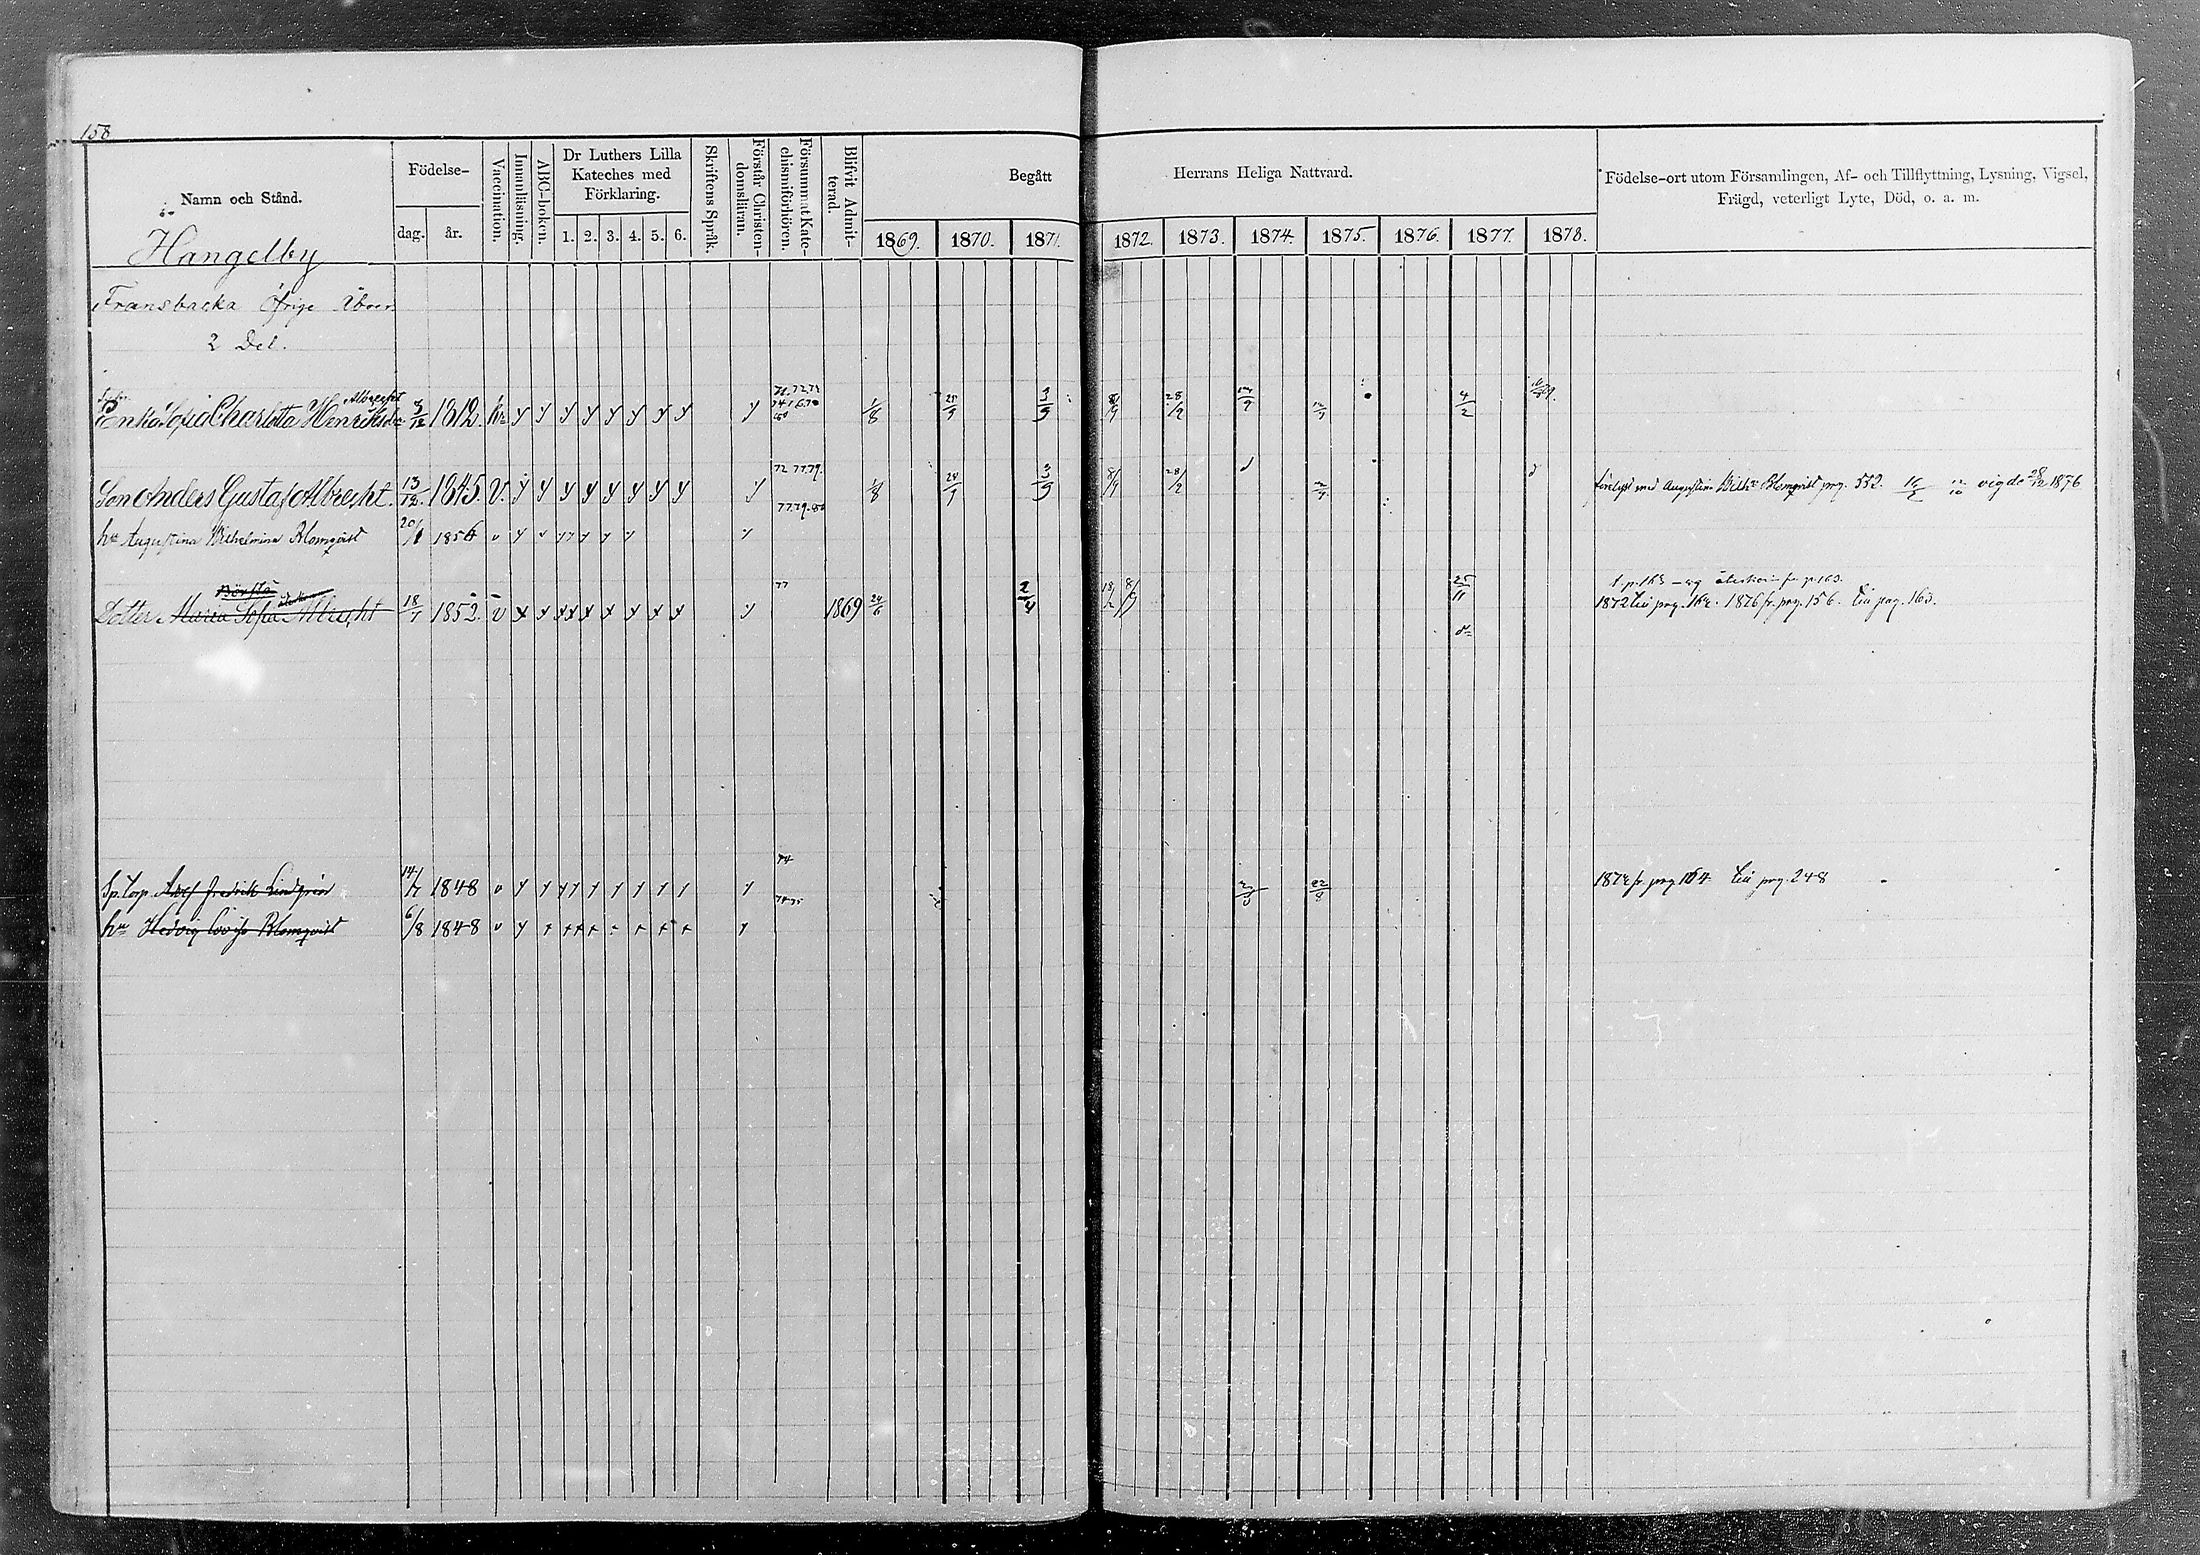 158
Namn och Stånd.
Födelse-
dag. år.
Vaccination.
Innanläsning.
ABC-boken.
Dr Luthers Lilla
Kateches med
Förklaring.
1. 2. 3. 4. 5. 6.
Skriftens Språk.
Förstår Christen-
domsläran.
Försummat Kate-
chismiförhören.
Blifvit Admit-
terad.
Begått Herrans Heliga Nattvard.
1869. 1870. 1871. 1872. 1873. 1874. 1875. 1876. 1877. 1878.
Födelse-ort utom Församlingen, Af- och Tillflyttning, Lysning, Vigsel,
Frägd, veterligt Lyte, Död, o. a. m.
Hangelby
Fransbacka Öfrige Åboer
2 Del.
Albrecht
Enka Sofia Charlotta Henriksdr 8/12 1812. y y y y y y y y y y 1/8 25/9 3/9 8/9 28/2 4/2
72 77.79.
Son Anders Gustaf Albrecht. 13/12. 1845. v. y y y y y y y y y 1/8 24/9 3/9 8/9 28/2 förelyst med Augustina Blomqvist pag. 552. vigde 28/12 1876
77.79.80
hu Augustina Wilhelmina Blomqvist 20/1 1854 v y v y y y y y y
Dotter Maria Sofia Albrecht 18/1 1852. v y y y y y y y y y 77 1869 24/6 2/4 18/2 8/9 25/11
1872 till pag. 162. 1876 fr. pag. 156. till pag. 163.
74
Sp. Torp. Axel Fredrik Lindgren 14/7 1848 v y y y y y y y y y y 22/8 fr. pag 164 till pag. 248
hu Hedvig Lovisa Blomqvist 6/8 1848 v y